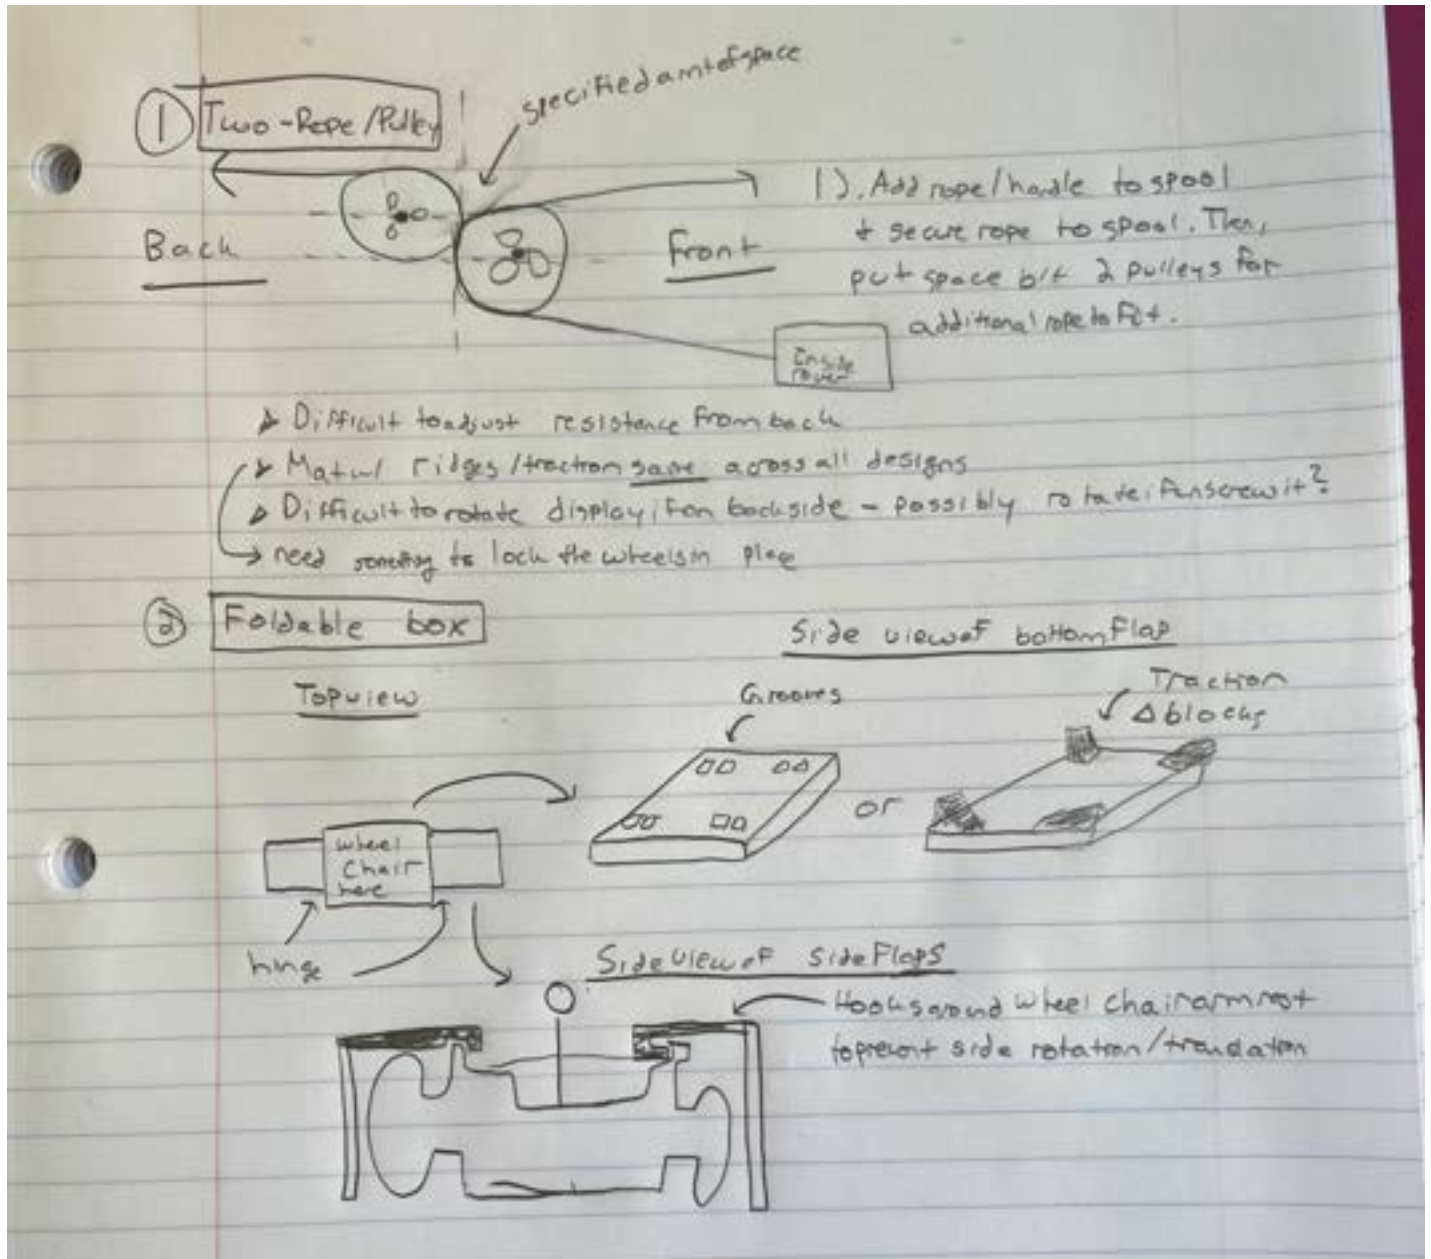 specified amt of space
① Two-Rope/Pulley
1). Add rope/handle to spool
+ secure rope to spool. Then,
Back
Front
put space b/t 2 pulleys for
additional rope to fit.
Inside
▷ Difficult to adjust resistance from back
▷ Mat w/ ridges/traction same across all designs
▷ Difficult to rotate display if on backside - possibly rotate if unscrew it?
→ need something to lock the wheels in place
② Foldable box
Side view of bottom flap
Top view
Grooves
Traction
Δ blocks
or
wheel
chair
here
hinge
Side view of side flaps
Hooks around wheel chair armrest
to prevent side rotation/translation